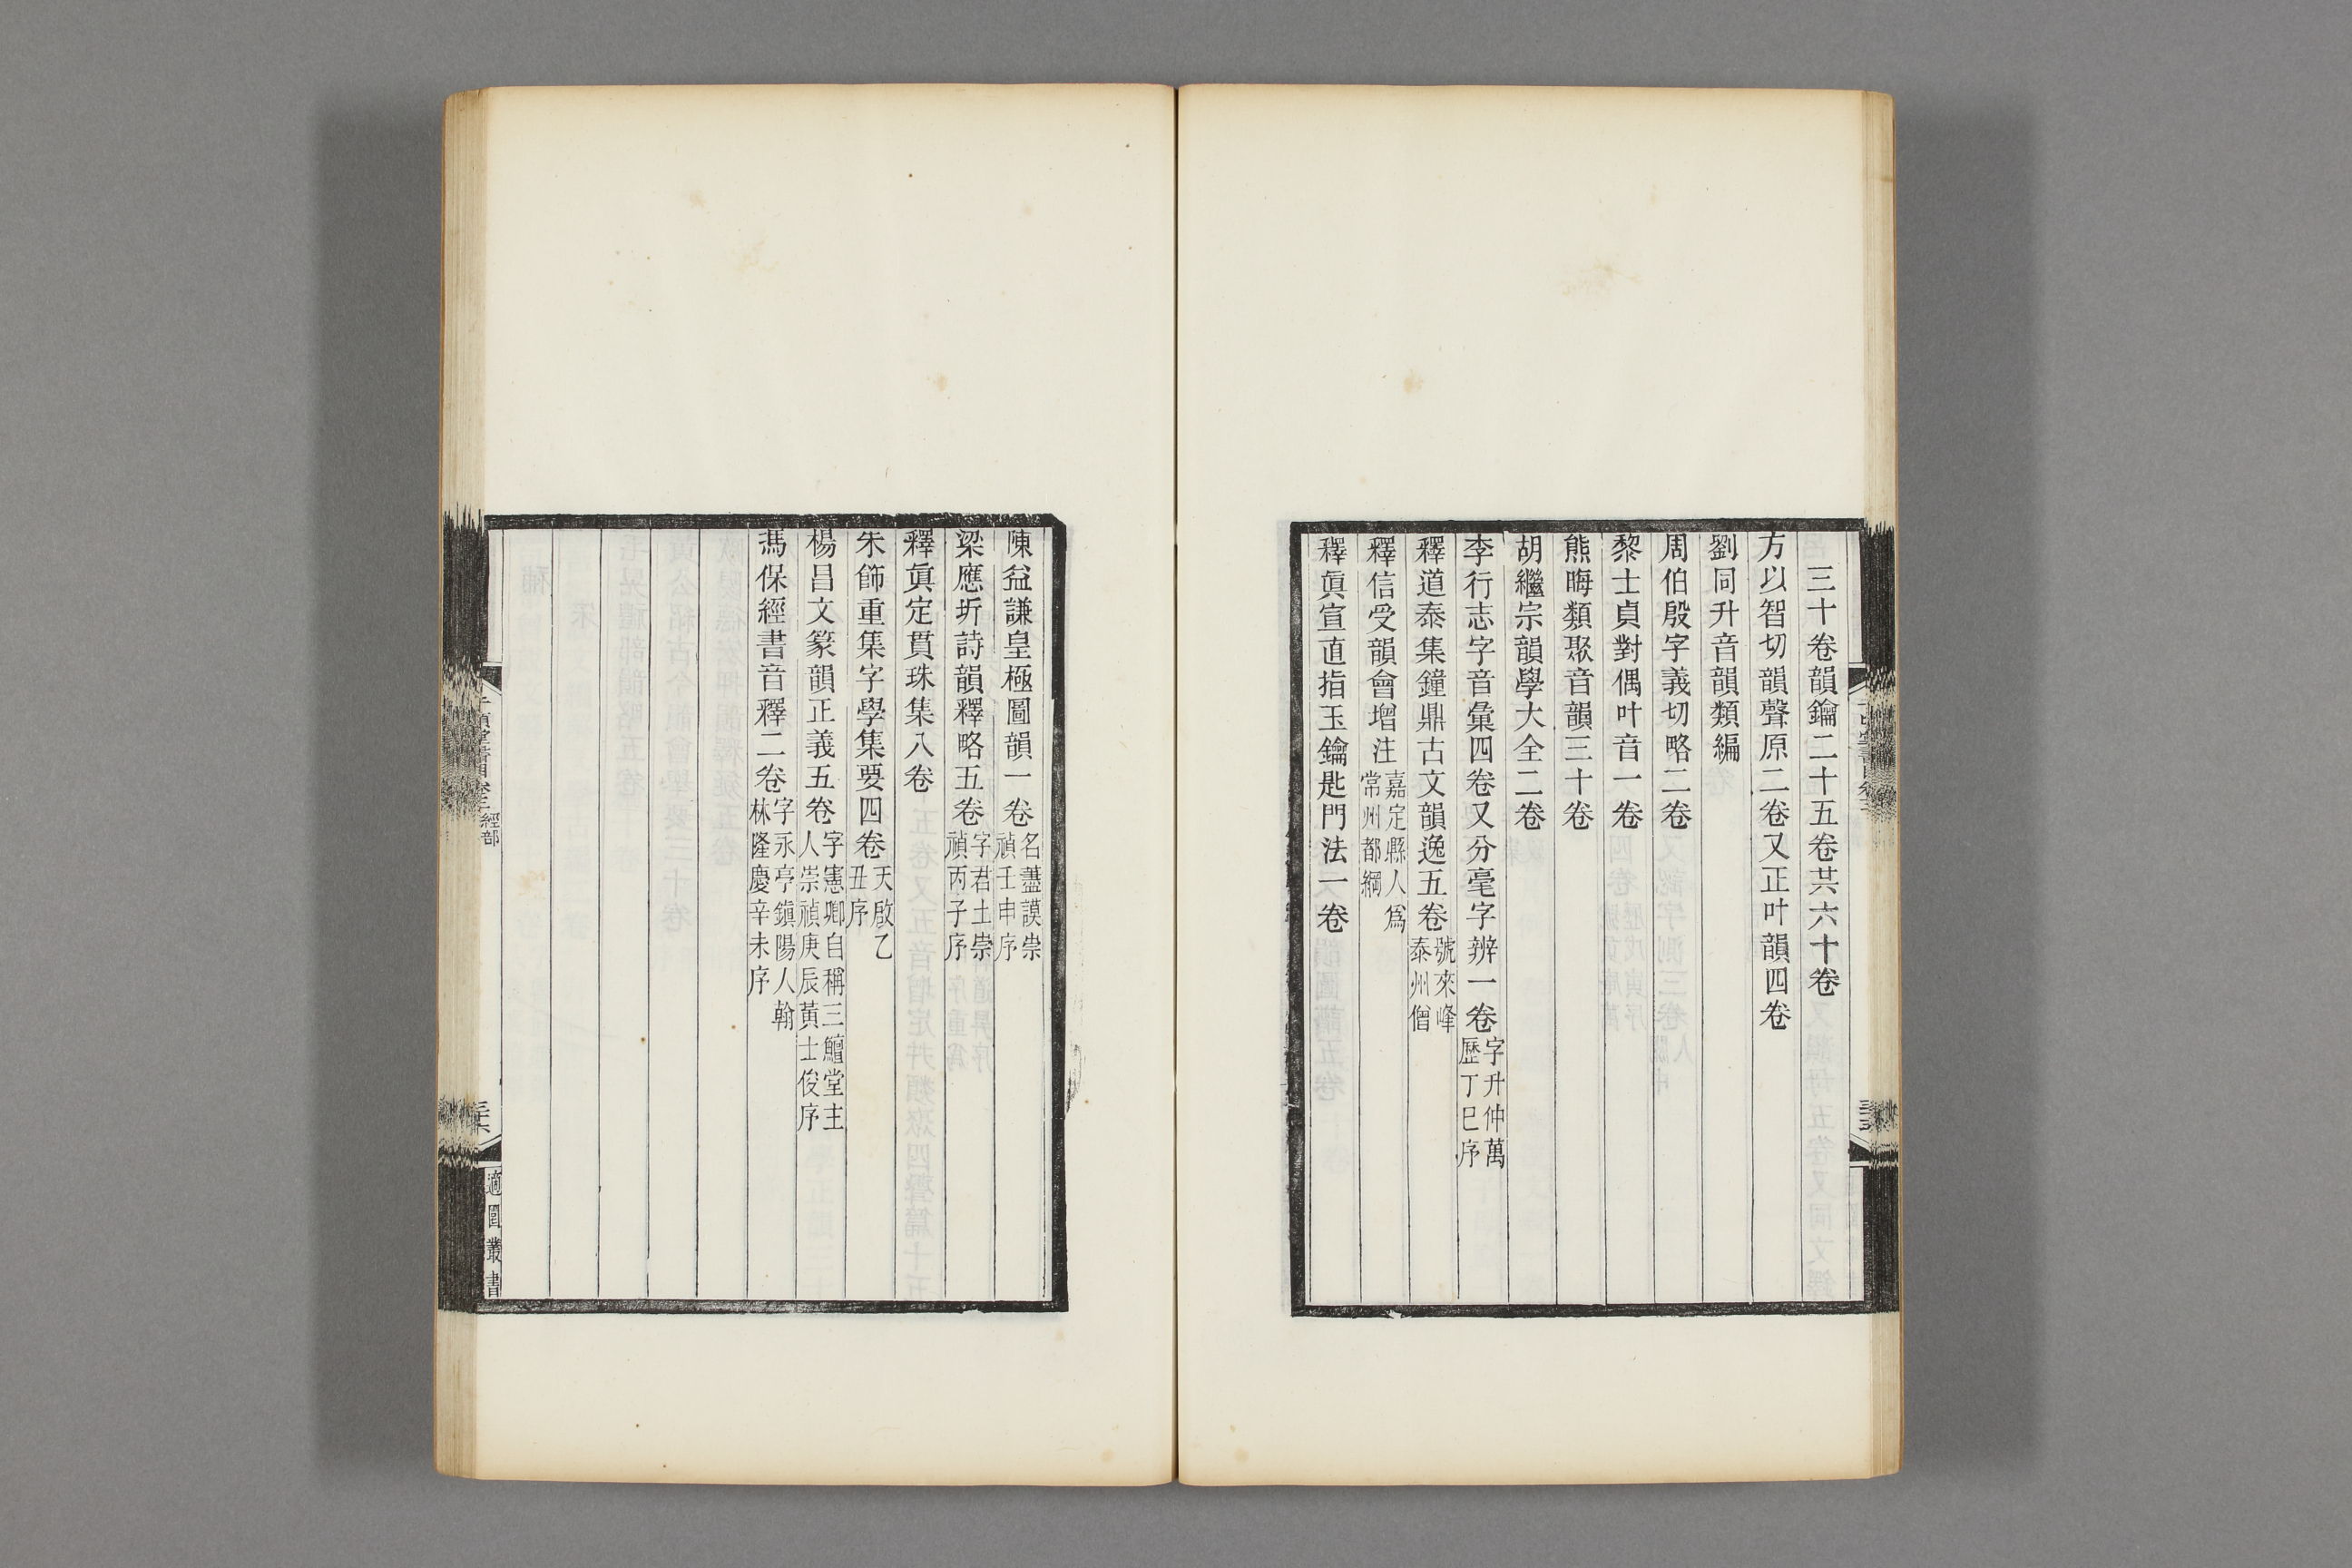 三十卷韻鑰二十五卷共六十卷
方以智切韻聲原二卷又正叶韻四卷
劉同升音韻類編
周伯殷字義切略二卷
黎士貞對偶叶音一卷
熊晦類聚音韻三十卷
胡繼宗韻學大全二卷
李行志字音彙四卷又分毫字辨一卷字升仲萬
歷丁巳序
釋道泰集鐘鼎古文韻逸五卷號來峰
泰州僧
釋信受韻會增注嘉定縣人爲
常州都綱
釋眞宣直指玉鑰匙門法一卷
陳益謙皇極圖韻一卷名藎謨崇
禎壬申序
梁應圻詩韻釋略五卷字君土崇
禎丙子序
釋眞定貫珠集八卷
朱飾重集字學集要四卷天啟乙
丑序
楊昌文篆韻正義五卷字憲卿自稱三鱣堂主
人崇禎庚辰黃士俊序
馮保經書音釋二卷字永亭鎭陽人翰
林隆慶辛未序
經部
適園叢書